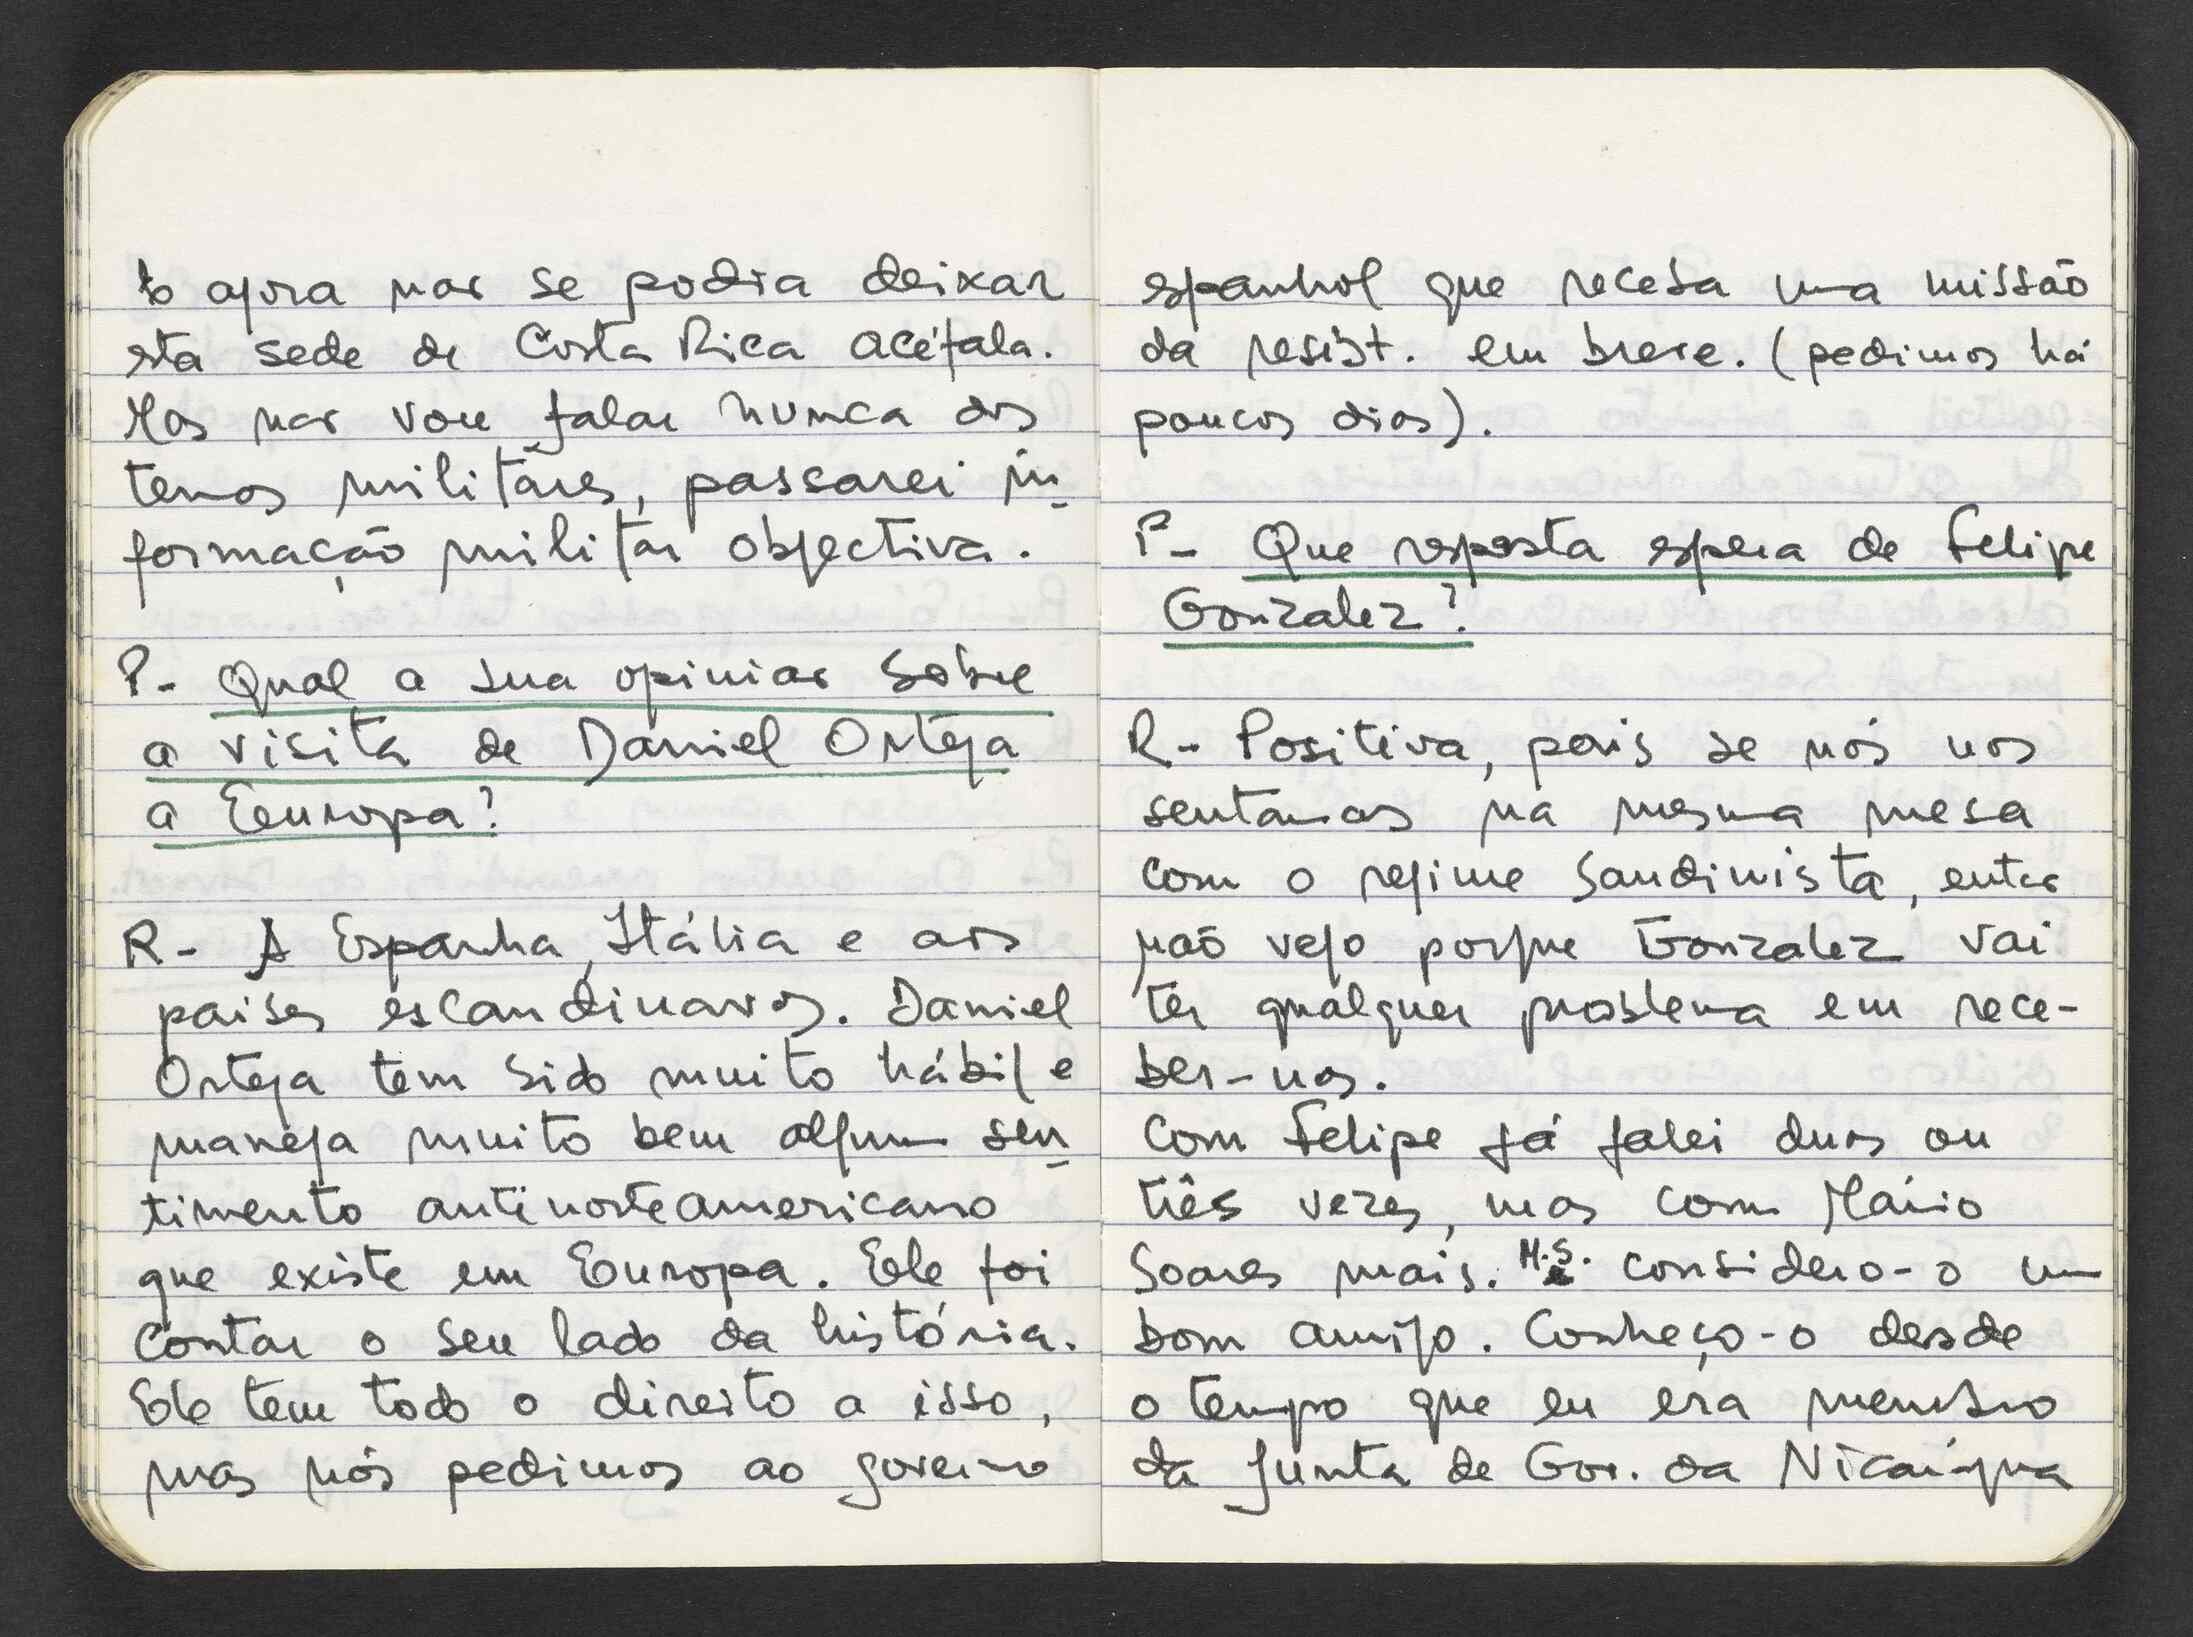 to agora nao se podia deixar
sta sede de Costa Rica acéfala.
Mas nao vou falar nunca dos
temas militares, passarei in-
formação militar objectiva.
P- Qual a sua opiniao sobre
a visita de Daniel Ortega
a Europa?
R- A Espanha, Itália e aos
paises escandinavos. Daniel
Ortega tem sido muito hábil e
maneja muito bem algum sen-
timento antinorteamericano
que existe em Europa. Ele foi
contar o seu lado da história.
Ele tem todo o direito a isso,
mas nós pedimos ao governo
espanhol que receba uma missão
da resist. em breve. (pedimos há
poucos dias).
P- Que resposta espera de Felipe
Gonzalez?
R- Positiva, pois se nós nos
sentamos na mesma mesa
com o regime Sandinista, entao
não vejo porque Gonzalez vai
ter qualquer problema em rece-
ber-nos.
Com Felipe já falei duas ou
três vezes, mas com Mário
Soares mais. M.S. considero-o um
bom amigo. Conheço-o desde
o tempo que eu era membro
da Junta de Gov. da Nicarágua